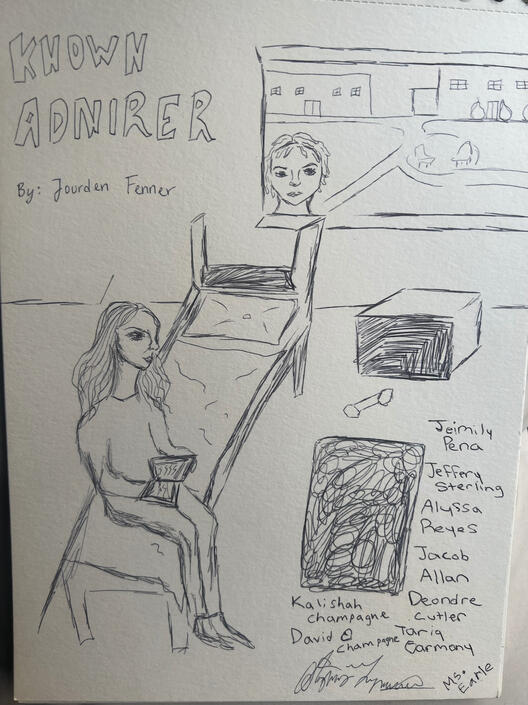 KNOWN
ADNIRER
By: Jourden Fenner
Jeimily
Pena
Jeffery
Sterling
Alyssa
Reyes
Jacob
Allan
Kalishah
Champagne
Deondre
Cutler
David
Champagne
Tariq
Earmony
Ms.
Earle